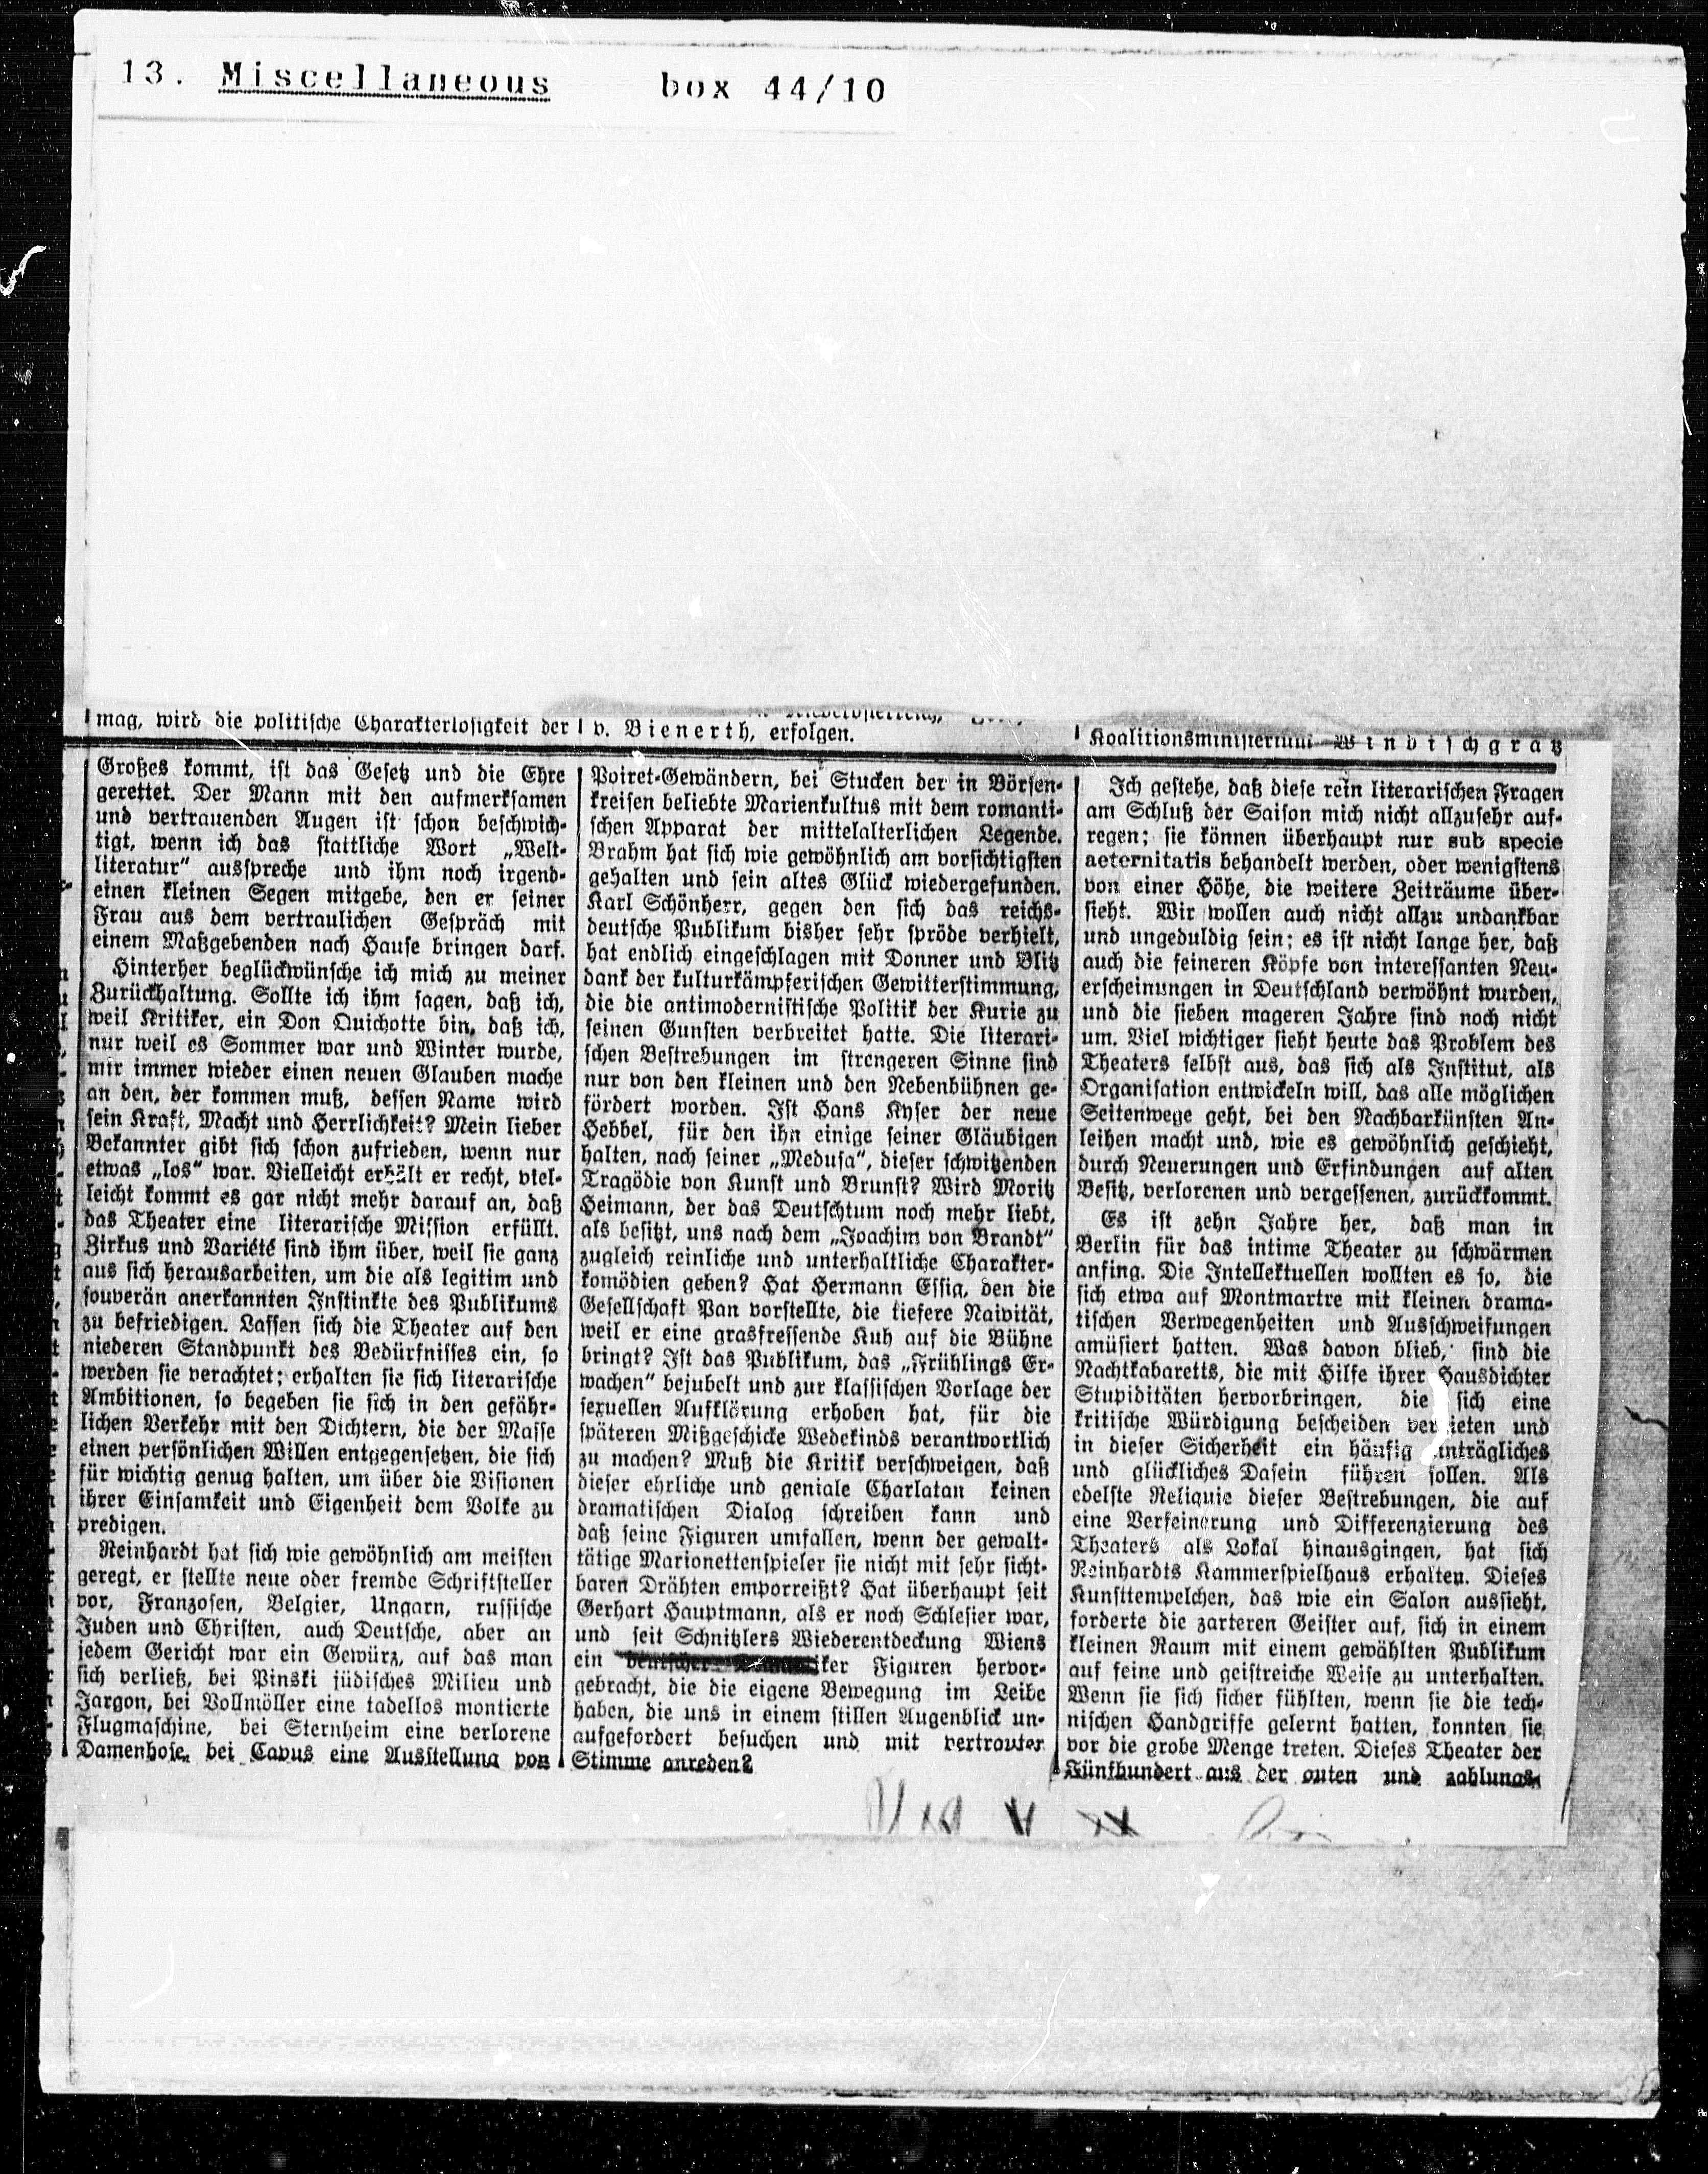 13. Miscellaneous box 44/10
mag, wird die politische Charakterlosigkeit der
v. Bienerth, erfolgen.
Koalitionsministerium Windischgratz
Großes kommt, ist das Gesetz und die Ehre
gerettet. Der Mann mit den aufmerksamen
und vertrauenden Augen ist schon beschwich-
tigt, wenn ich das stattliche Wort „Welt-
literatur“ ausspreche und ihm noch irgend-
einen kleinen Segen mitgebe, den er seiner
Frau aus dem vertraulichen Gespräch mit
einem Maßgebenden nach Hause bringen darf.
Hinterher beglückwünsche ich mich zu meiner
Zurückhaltung. Sollte ich ihm sagen, daß ich,
weil Kritiker, ein Don Quichotte bin, daß ich,
nur weil es Sommer war und Winter wurde,
mir immer wieder einen neuen Glauben mache
an den, der kommen muß, dessen Name wird
sein Kraft, Macht und Herrlichkeit? Mein lieber
Bekannter gibt sich schon zufrieden, wenn nur
etwas „los“ war. Vielleicht erhält er recht, viel-
leicht kommt es gar nicht mehr darauf an, daß
das Theater eine literarische Mission erfüllt.
Zirkus und Variété sind ihm über, weil sie ganz
aus sich herausarbeiten, um die als legitim und
souverän anerkannten Instinkte des Publikums
zu befriedigen. Lassen sich die Theater auf den
niederen Standpunkt des Bedürfnisses ein, so
werden sie verachtet; erhalten sie sich literarische
Ambitionen, so begeben sie sich in den gefähr-
lichen Verkehr mit den Dichtern, die der Masse
einen persönlichen Willen entgegensetzen, die sich
für wichtig genug halten, um über die Visionen
ihrer Einsamkeit und Eigenheit dem Volke zu
predigen.
Reinhardt hat sich wie gewöhnlich am meisten
geregt, er stellte neue oder fremde Schriftsteller
vor, Franzosen, Belgier, Ungarn, russische
Juden und Christen, auch Deutsche, aber an
jedem Gericht war ein Gewürz, auf das man
sich verließ, bei Pinski jüdisches Milieu und
Jargon, bei Vollmöller eine tadellos montierte
Flugmaschine, bei Sternheim eine verlorene
Damenhose, bei Capus eine Ausstellung von
Poiret-Gewändern, bei Stucken der in Börsen-
kreisen beliebte Marienkultus mit dem romanti-
schen Apparat der mittelalterlichen Legende.
Brahm hat sich wie gewöhnlich am vorsichtigsten
gehalten und sein altes Glück wiedergefunden.
Karl Schönherr, gegen den sich das reichs-
deutsche Publikum bisher sehr spröde verhielt,
hat endlich eingeschlagen mit Donner und Blitz
dank der kulturkämpferischen Gewitterstimmung,
die die antimodernistische Politik der Kurie zu
seinen Gunsten verbreitet hatte. Die literari-
schen Bestrebungen im strengeren Sinne sind
nur von den kleinen und den Nebenbühnen ge-
fördert worden. Ist Hans Kyser der neue
Hebbel, für den ihn einige seiner Gläubigen
halten, nach seiner „Medusa“, dieser schwitzenden
Tragödie von Kunst und Brunst? Wird Moritz
Heimann, der das Deutschtum noch mehr liebt,
als besitzt, uns nach dem „Joachim von Brandt“
zugleich reinliche und unterhaltliche Charakter-
komödien geben? Hat Hermann Essig, den die
Gesellschaft Pan vorstellte, die tiefere Naivität,
weil er eine grasfressende Kuh auf die Bühne
bringt? Ist das Publikum, das „Frühlings Er-
wachen“ bejubelt und zur klassischen Vorlage der
sexuellen Aufklärung erhoben hat, für die
späteren Mißgeschicke Wedekinds verantwortlich
zu machen? Muß die Kritik verschweigen, daß
dieser ehrliche und geniale Charlatan keinen
dramatischen Dialog schreiben kann und
daß seine Figuren umfallen, wenn der gewalt-
tätige Marionettenspieler sie nicht mit sehr sicht-
baren Drähten emporreißt? Hat überhaupt seit
Gerhart Hauptmann, als er noch Schlesier war,
und seit Schnitzlers Wiederentdeckung Wiens
ein deutscher Figuren hervor-
gebracht, die die eigene Bewegung im Leibe
haben, die uns in einem stillen Augenblick un-
aufgefordert besuchen und mit vertrauter
Stimme anreden?
Ich gestehe, daß diese rein literarischen Fragen
am Schluß der Saison mich nicht allzusehr auf-
regen; sie können überhaupt nur sub specie
aeternitatis behandelt werden, oder wenigstens
von einer Höhe, die weitere Zeiträume über-
sieht. Wir wollen auch nicht allzu undankbar
und ungeduldig sein; es ist nicht lange her, daß
auch die feineren Köpfe von interessanten Neu-
erscheinungen in Deutschland verwöhnt wurden,
und die sieben mageren Jahre sind noch nicht
um. Viel wichtiger sieht heute das Problem des
Theaters selbst aus, das sich als Institut, als
Organisation entwickeln will, das alle möglichen
Seitenwege geht, bei den Nachbarkünsten An-
leihen macht und, wie es gewöhnlich geschieht,
durch Neuerungen und Erfindungen auf alten
Besitz, verlorenen und vergessenen, zurückkommt.
Es ist zehn Jahre her, daß man in
Berlin für das intime Theater zu schwärmen
anfing. Die Intellektuellen wollten es so, die
sich etwa auf Montmartre mit kleinen drama-
tischen Verwegenheiten und Ausschweifungen
amüsiert hatten. Was davon blieb, sind die
Nachtkabaretts, die mit Hilfe ihrer Hausdichter
Stupiditäten hervorbringen, die sich eine
kritische Würdigung bescheiden verbieten und
in dieser Sicherheit ein häufig einträgliches
und glückliches Dasein führen sollen. Als
edelste Reliquie dieser Bestrebungen, die auf
eine Verfeinerung und Differenzierung des
Theaters als Lokal hinausgingen, hat sich
Reinhardts Kammerspielhaus erhalten. Dieses
Kunsttempelchen, das wie ein Salon aussieht,
forderte die zarteren Geister auf, sich in einem
kleinen Raum mit einem gewählten Publikum
auf feine und geistreiche Weise zu unterhalten.
Wenn sie sich sicher fühlten, wenn sie die tech-
nischen Handgriffe gelernt hatten, konnten sie
vor die grobe Menge treten. Dieses Theater der
Fünfhundert aus der guten und zahlungs-